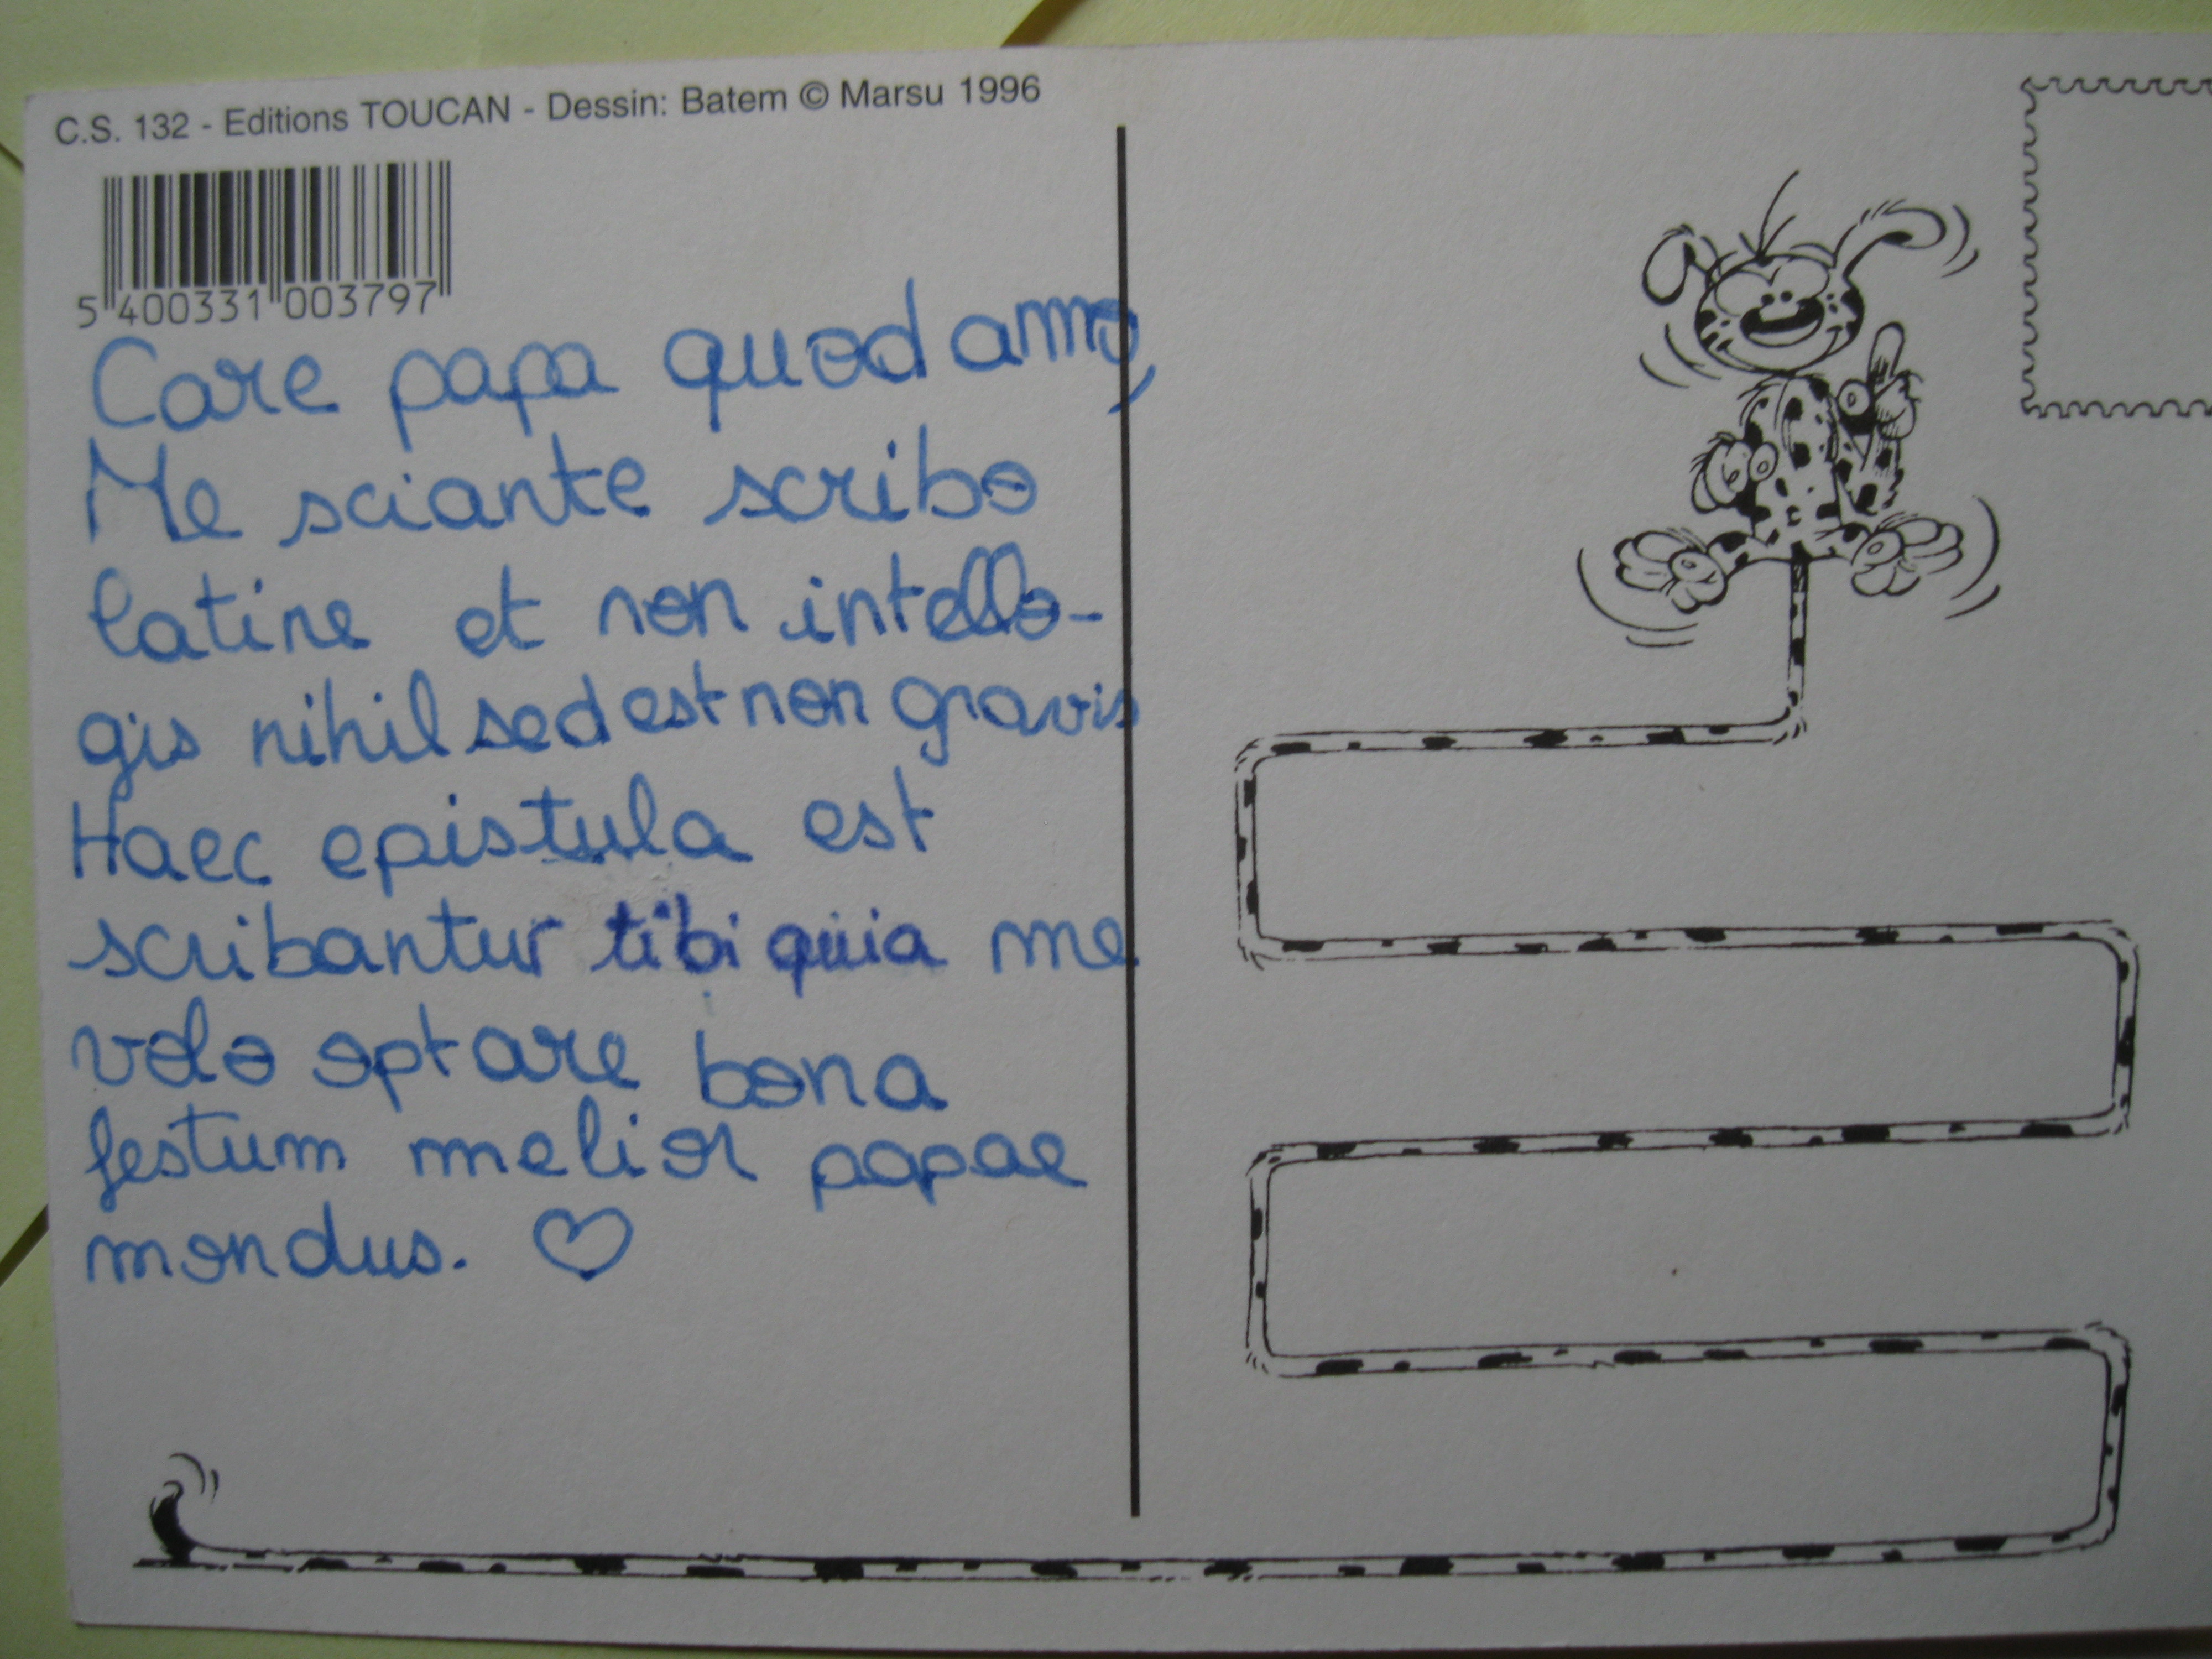 C.S. 132 - Editions TOUCAN - Dessin: Batem © Marsu 1996
5 400331 003797
Care papa quod amo,
Me sciante scribo
latine et non intello-
gis nihil sed est non gravis
Haec epistula est
scribantur tibi quia me
volo optare bona
festum melior papae
mondus. ♡